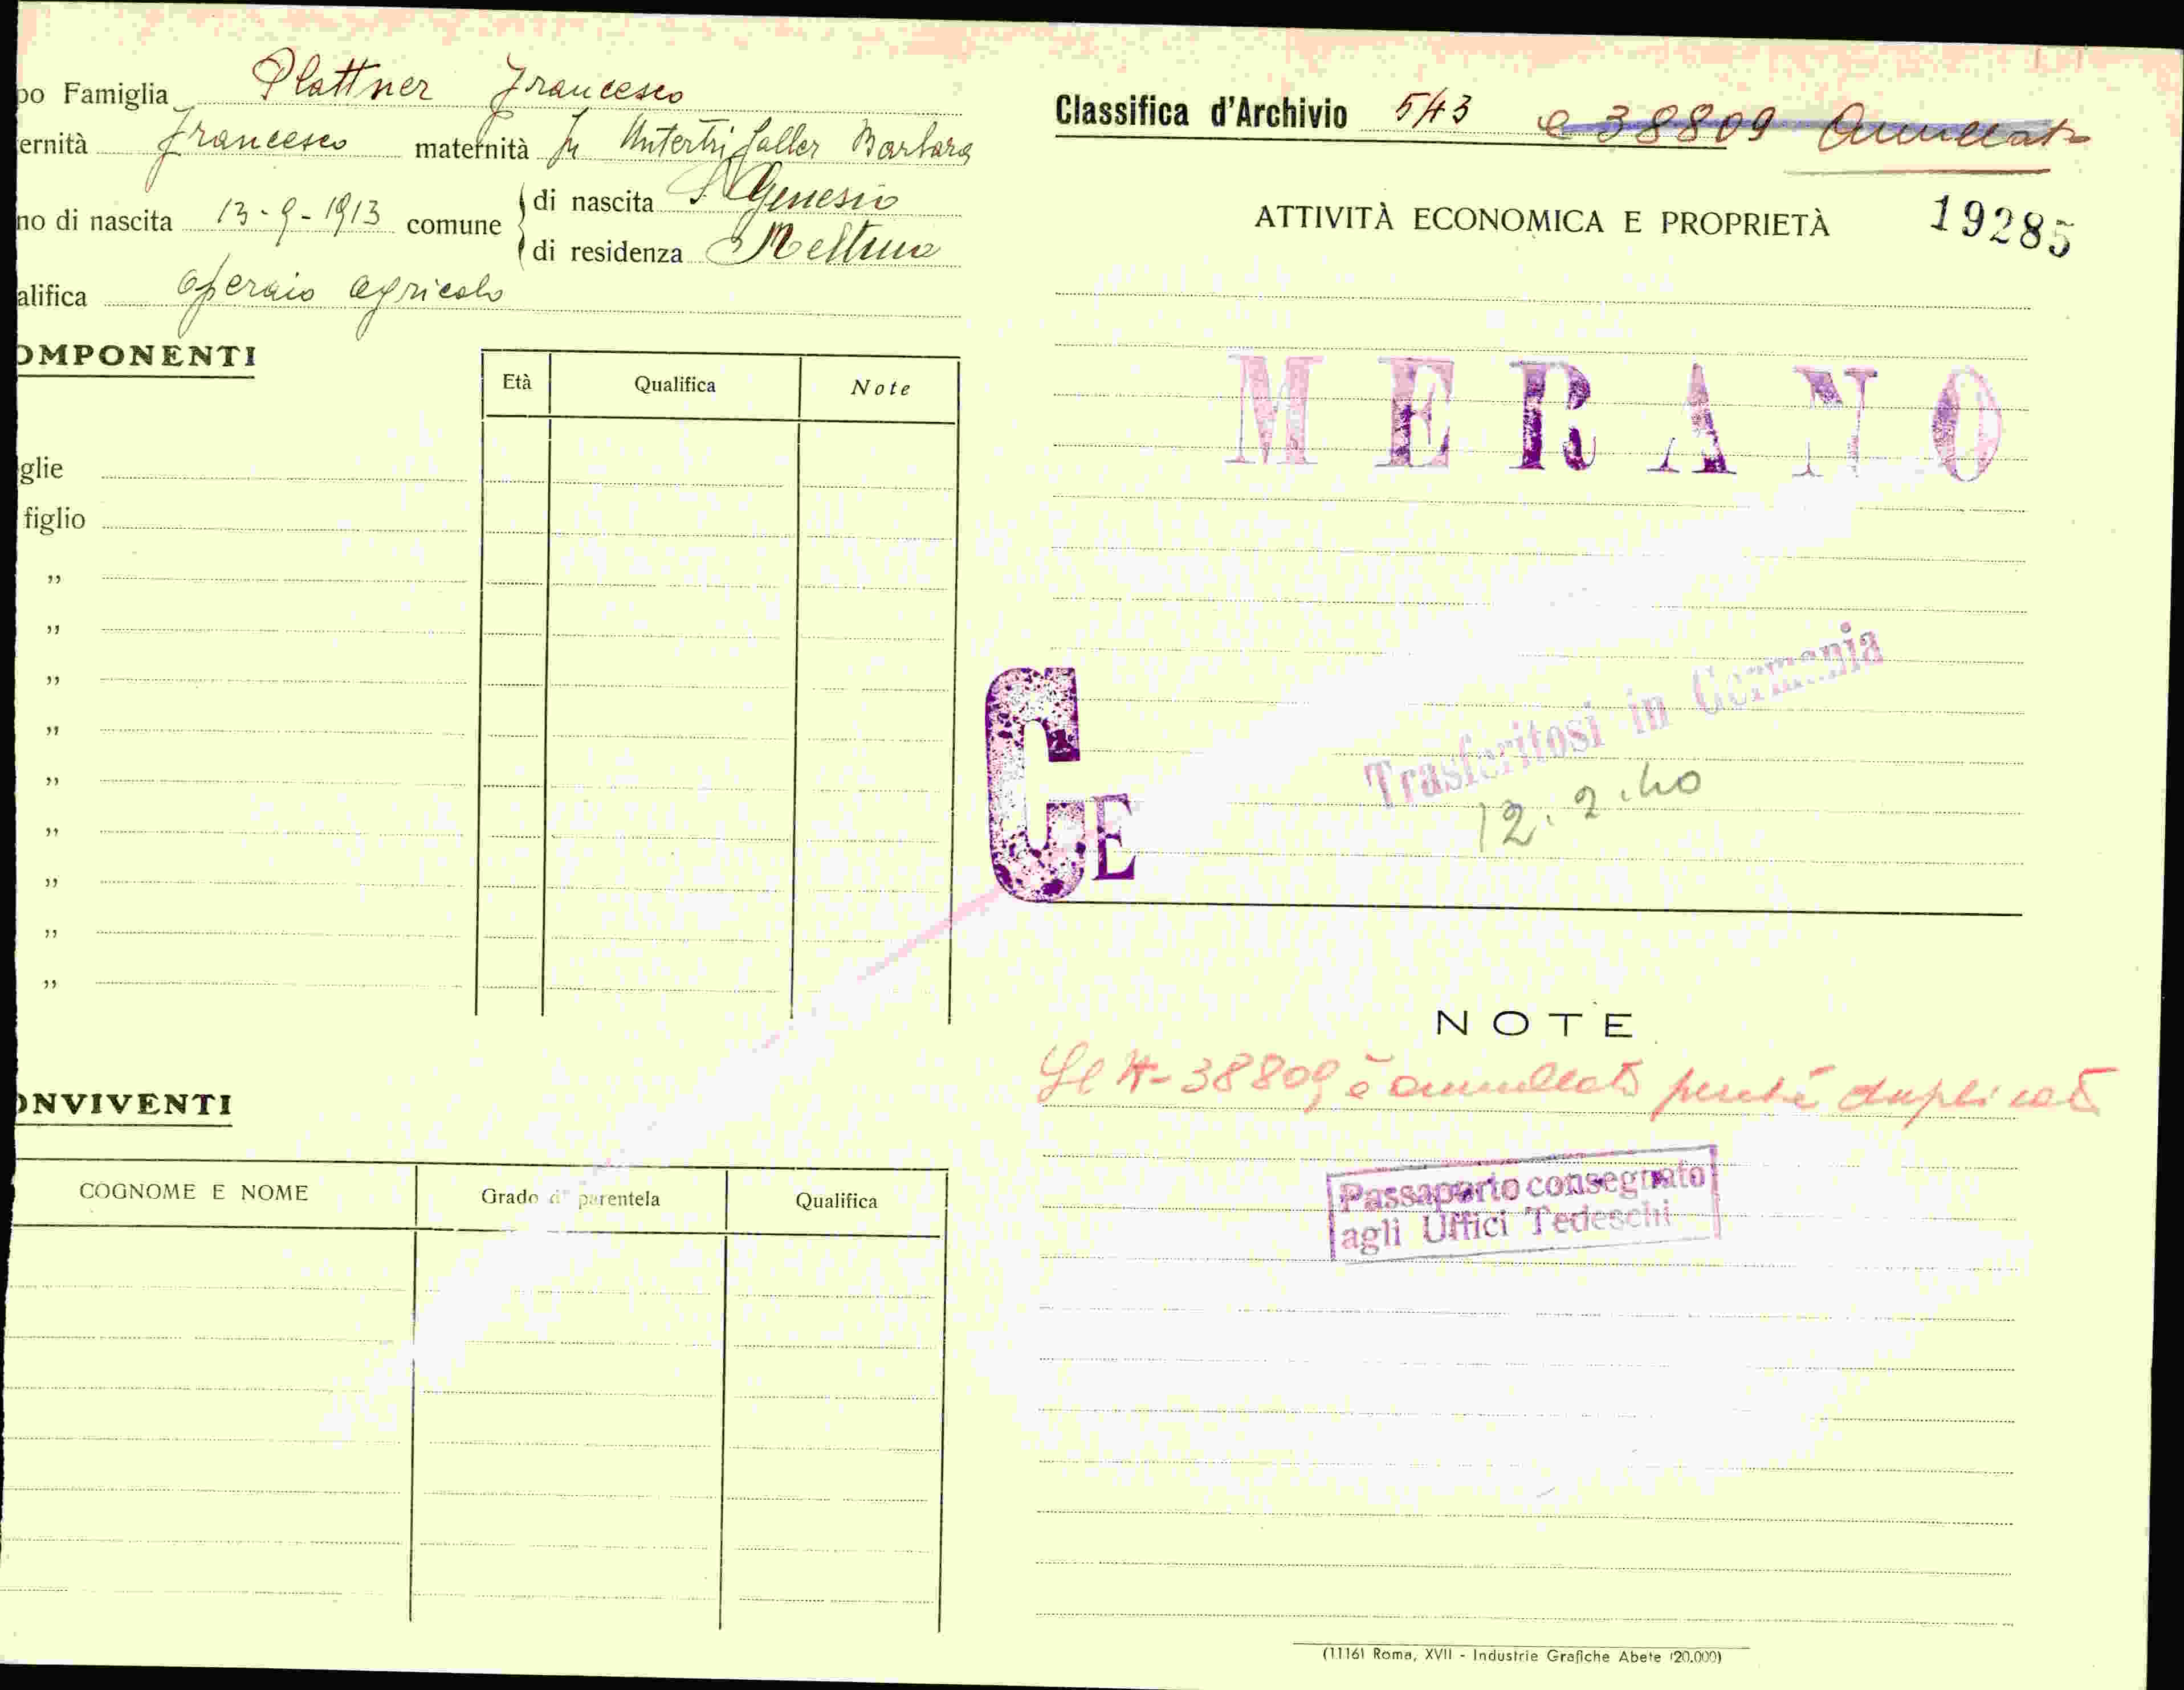 po Famiglia Plattner Francesco
ernità Francesco maternità fu Untertrifaller Barbara
no di nascita 13-9-1913 comune di nascita S. Genesio
di residenza Meltina
alifica operaio agricolo
OMPONENTI
Età Qualifica Note
glie
figlio
"
"
"
"
"
"
"
"
"
ONVIVENTI
COGNOME E NOME Grado di parentela Qualifica
Classifica d'Archivio 543 e 38809 Annullato
ATTIVITÀ ECONOMICA E PROPRIETÀ 19285
MERANO
Trasferitosi in Germania
12.2.40
CE
NOTE
Il N- 38809 è annullato perché duplicato
Passaporto consegnato
agli Uffici Tedeschi
(1116) Roma, XVII - Industrie Grafiche Abete (20.000)